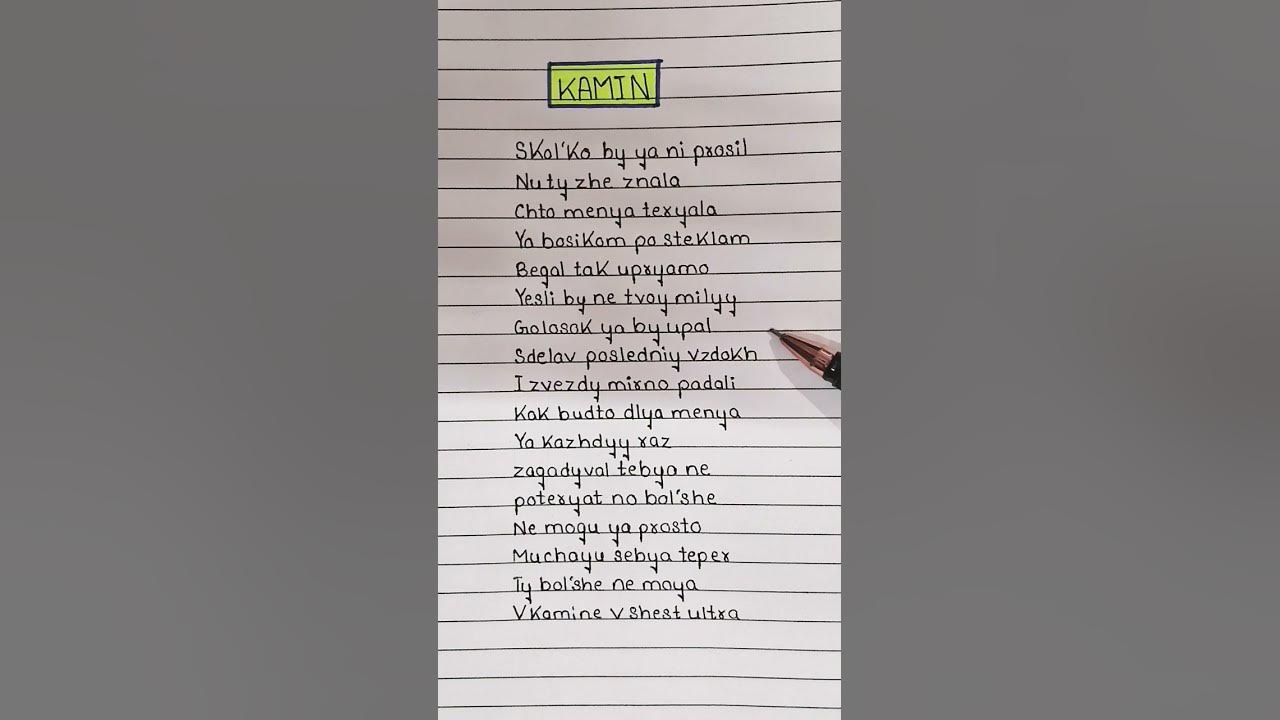 KAMIN
Skol'ko by ya ni prosil
Nu ty zhe znala
Chto menya teryala
Ya bosikom po steklam
Begal tak upryamo
Yesli by ne tvoy milyy
Golosok ya by upal
Sdelav posledniy vzdokh
I zvezdy mirno padali
Kak budto dlya menya
Ya kazhdyy raz
zagadyval tebya ne
poteryat no bol'she
Ne mogu ya prosto
Muchayu sebya teper
Ty bol'she ne moya
V kamine v shest ultra